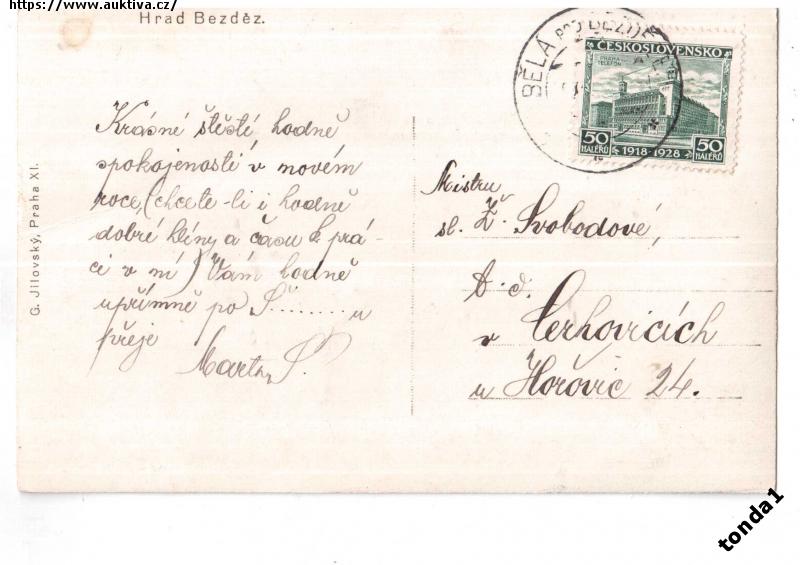 https://www.auktiva.cz/
Hrad Bezděz.
BĚLÁ POD BEZDĚZEM
ČESKOSLOVENSKO
PRAHA
TELEFON
50 HALÉŘŮ 1918-1928 50 HALÉŘŮ
G. Jilovský, Praha XI.
Krásné štěstí, hodně
spokojenosti v novém
roce, (chcete-li i hodně
dobré hlíny a času k prá-
ci v ní) Vám hodně
upřímně po Š........u
přeje
Marta Š.
Mistru
sl. Ž. Svobodové,
t. č.
v Cerhovicích
u Hořovic 24.
tonda1